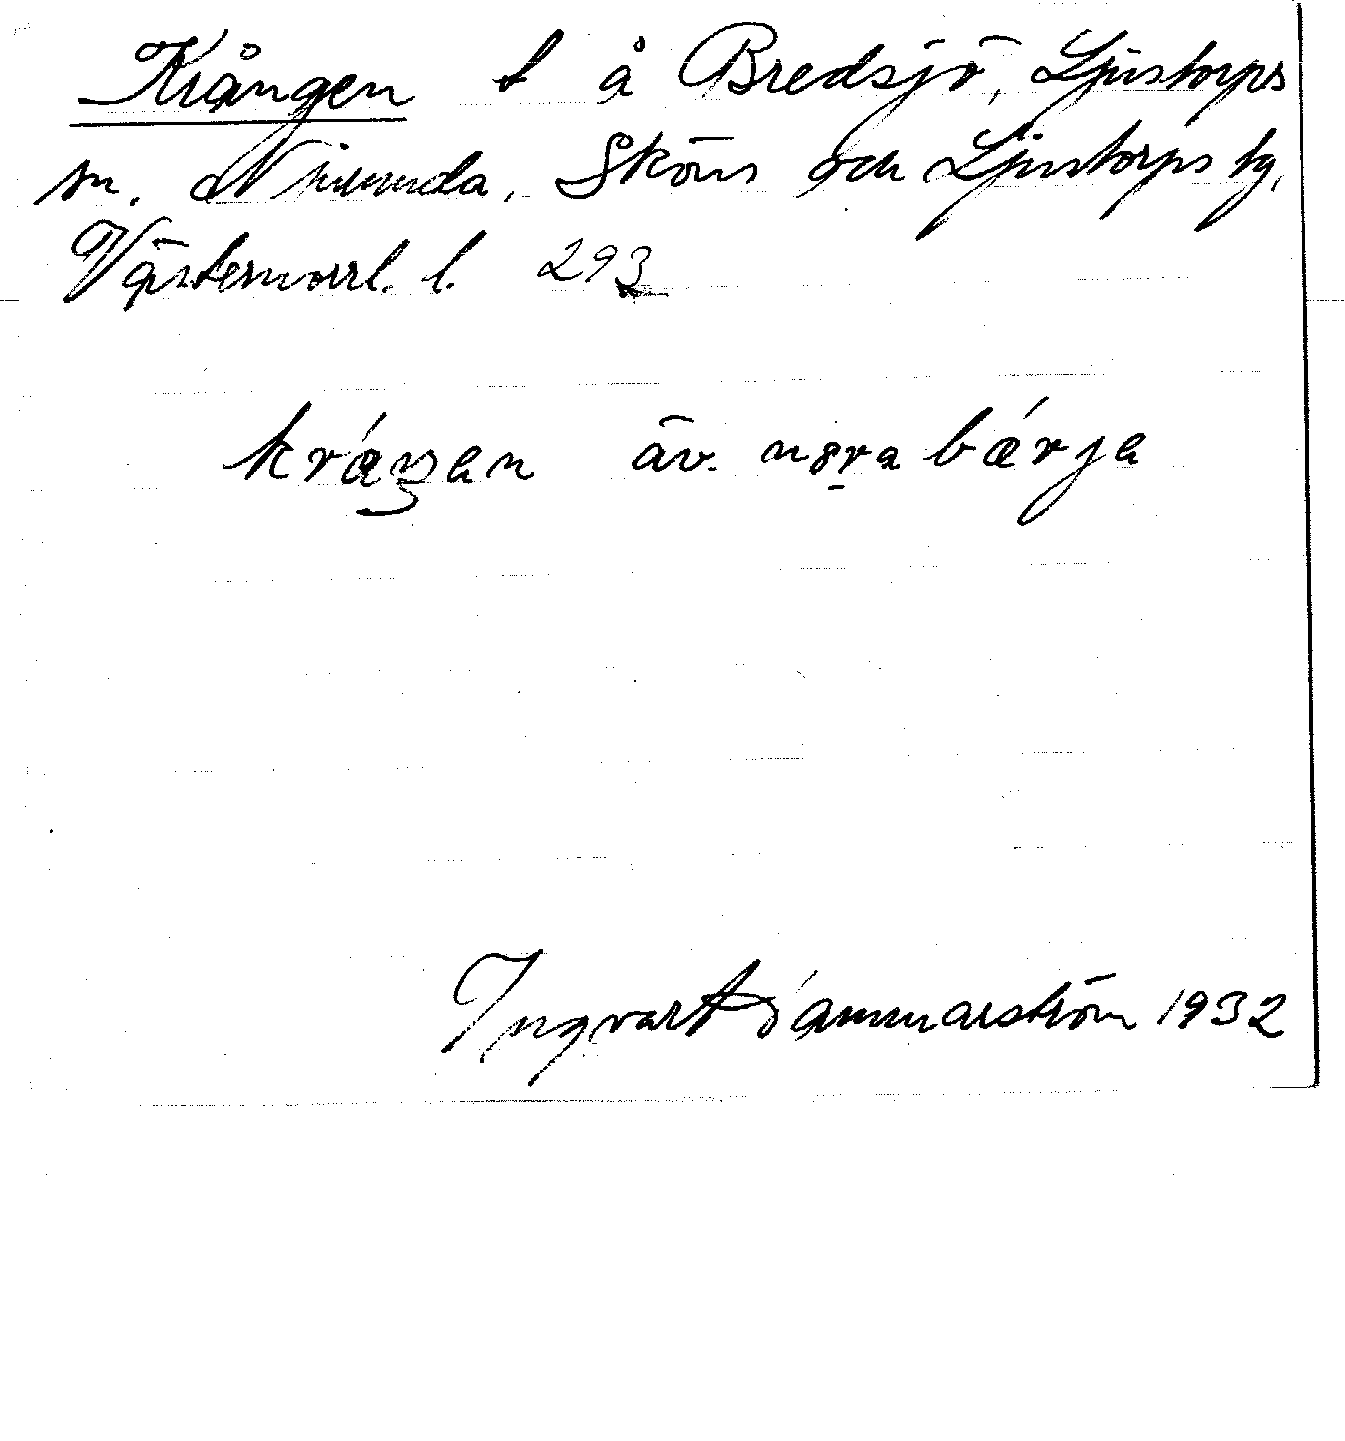 Krången t å Bredsjö, Ljustorps
sn. Njurunda, Sköns och Ljustorps tg,
Västernorrl. l. 293
kráŋen äv. nørabǽrja
Ingvar Hammarström 1932